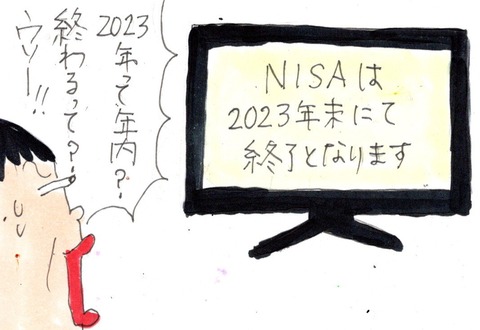 NISAは
2023年末にて
終了となります
2023年って年内?
終わるって?
ウソー!!